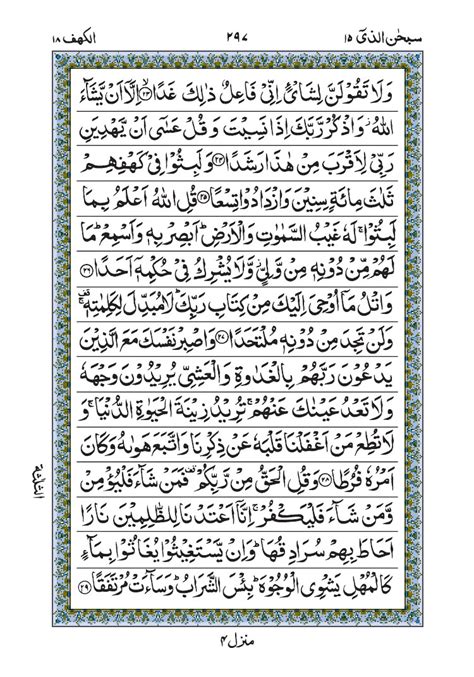 سبحٰن الذیٓ ۱۵ ۲۹۷ الکھف ۱۸
وَلَا تَقُوۡلَنَّ لِشَایۡءٍ اِنِّیۡ فَاعِلٌ ذٰلِكَ غَدًا ﴿۲۳﴾ اِلَّاۤ اَنۡ یَّشَآءَ
اللّٰهُ ؗ وَاذۡكُرۡ رَّبَّكَ اِذَا نَسِیۡتَ وَ قُلۡ عَسٰۤی اَنۡ یَّهۡدِیَنِ
رَبِّیۡ لِاَقۡرَبَ مِنۡ هٰذَا رَشَدًا ﴿۲۴﴾ وَلَبِثُوۡا فِیۡ كَهۡفِهِمۡ
ثَلٰثَ مِائَةٍ سِنِیۡنَ وَازۡدَادُوۡا تِسۡعًا ﴿۲۵﴾ قُلِ اللّٰهُ اَعۡلَمُ بِمَا
لَبِثُوۡا ۚ لَهٗ غَیۡبُ السَّمٰوٰتِ وَالۡاَرۡضِ ؕ اَبۡصِرۡ بِهٖ وَاَسۡمِعۡ ؕ مَا
لَهُمۡ مِّنۡ دُوۡنِهٖ مِنۡ وَّلِیٍّ ؗ وَّلَا یُشۡرِكُ فِیۡ حُكۡمِهٖۤ اَحَدًا ﴿۲۶﴾
وَاتۡلُ مَاۤ اُوۡحِیَ اِلَیۡكَ مِنۡ كِتَابِ رَبِّكَ ؕ لَا مُبَدِّلَ لِكَلِمٰتِهٖ ؕ
وَلَنۡ تَجِدَ مِنۡ دُوۡنِهٖ مُلۡتَحَدًا ﴿۲۷﴾ وَاصۡبِرۡ نَفۡسَكَ مَعَ الَّذِیۡنَ
یَدۡعُوۡنَ رَبَّهُمۡ بِالۡغَدٰوةِ وَالۡعَشِیِّ یُرِیۡدُوۡنَ وَجۡهَهٗ
وَلَا تَعۡدُ عَیۡنٰكَ عَنۡهُمۡ ۚ تُرِیۡدُ زِیۡنَةَ الۡحَیٰوةِ الدُّنۡیَا ۚ وَ
لَا تُطِعۡ مَنۡ اَغۡفَلۡنَا قَلۡبَهٗ عَنۡ ذِكۡرِنَا وَاتَّبَعَ هَوٰىهُ وَكَانَ
اَمۡرُهٗ فُرُطًا ﴿۲۸﴾ وَقُلِ الۡحَقُّ مِنۡ رَّبِّكُمۡ ۟ فَمَنۡ شَآءَ فَلۡیُؤۡمِنۡ
وَّمَنۡ شَآءَ فَلۡیَكۡفُرۡ ۙ اِنَّاۤ اَعۡتَدۡنَا لِلظّٰلِمِیۡنَ نَارًا ۙ
اَحَاطَ بِهِمۡ سُرَادِقُهَا ؕ وَاِنۡ یَّسۡتَغِیۡثُوۡا یُغَاثُوۡا بِمَآءٍ
كَالۡمُهۡلِ یَشۡوِی الۡوُجُوۡهَ ؕ بِئۡسَ الشَّرَابُ ؕ وَسَآءَتۡ مُرۡتَفَقًا ﴿۲۹﴾
الثلثة
منزل ۴